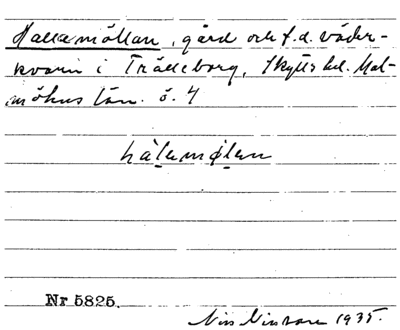 Hallamöllan, gård och f.d. väder-
kvarn i Trälleborg, Skytts hd. Mal-
möhus län. ö. 4
hàlamølan
Nr 5825.
Nils 1935.